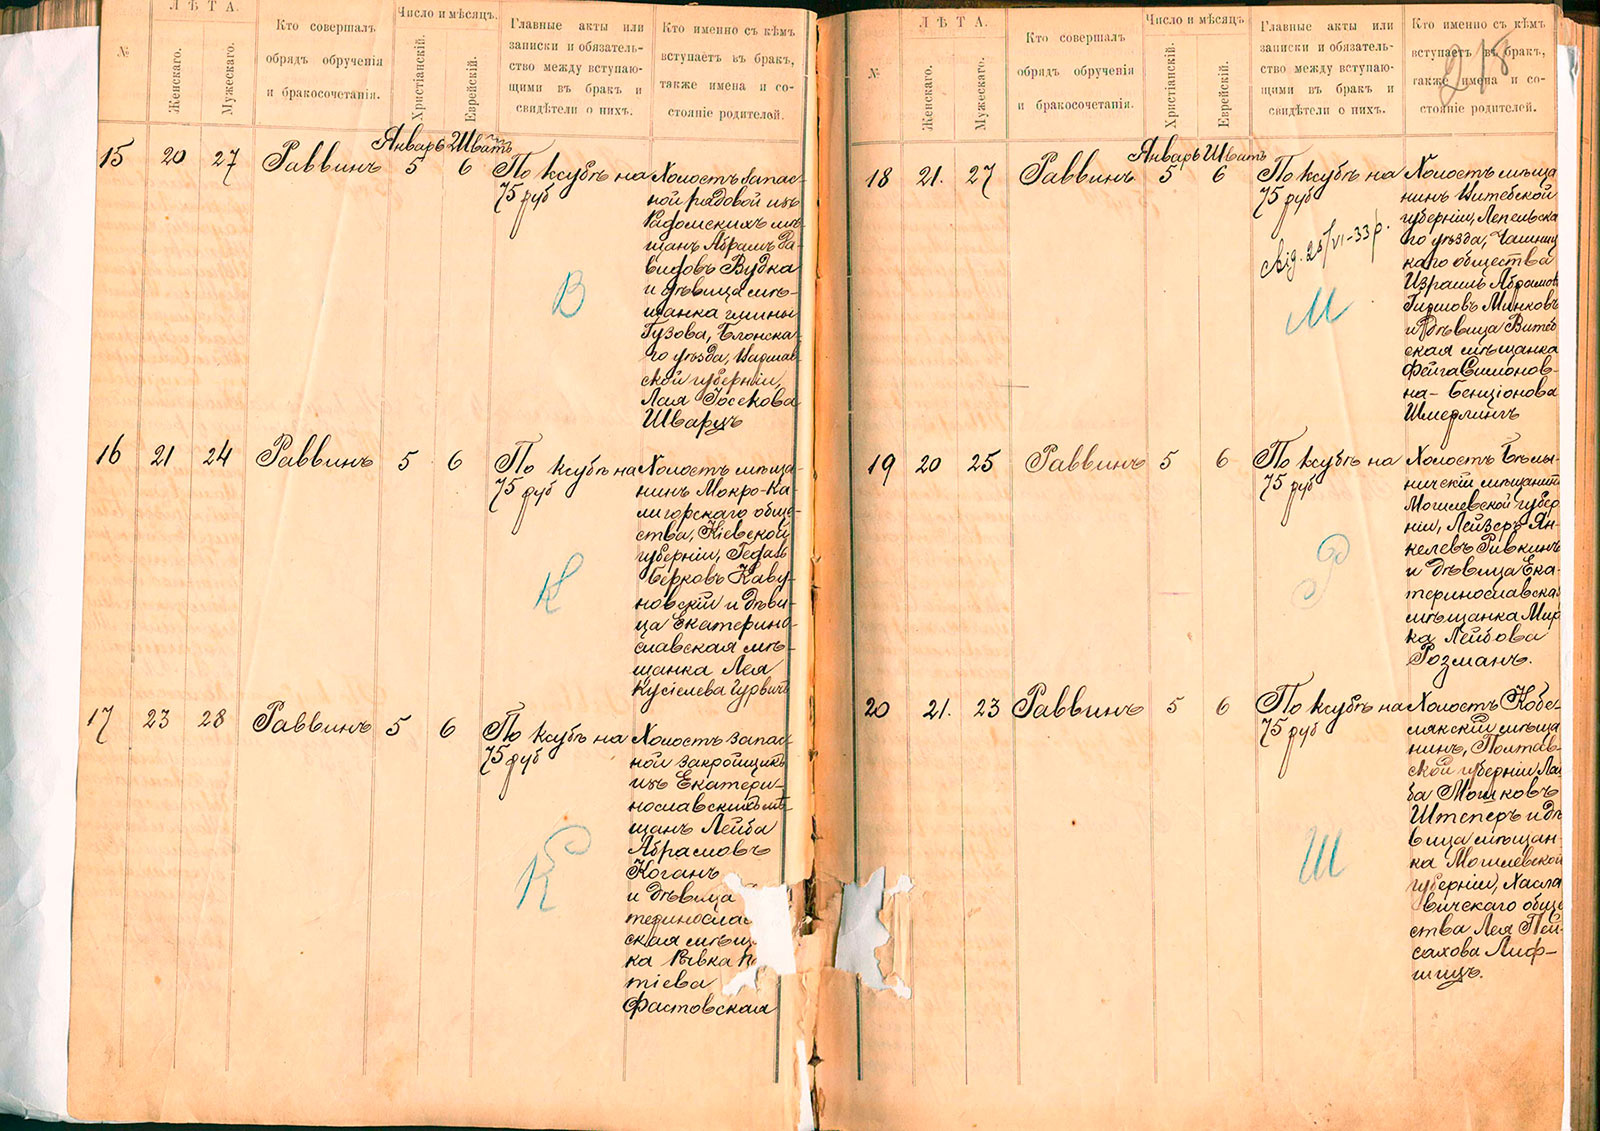 №
ЛѢТА.
Женскаго.
Мужескаго.
Кто совершалъ
обрядъ обрученія
и бракосочетанія.
Число и мѣсяцъ.
Христіанскій.
Еврейскій.
Главные акты или
записки и обязатель-
ство между вступаю-
щими въ бракъ и
свидѣтели о нихъ.
Кто именно съ кѣмъ
вступаетъ въ бракъ,
также имена и со-
стояніе родителей.
15 20 27 Раввинъ
Январь Шватъ
5 6
По ксубѣ на
75 руб
В
Холостъ запас-
ной рядовой изъ
Радомскихъ мѣ-
щанъ Абрамъ Да-
видовъ Вудка
и дѣвица мѣ-
щанка гмины
Гузова, Блонска-
го уѣзда, Варшав-
ской губерніи,
Лая Іосекова
Шварцъ
16 21 24 Раввинъ 5 6
По ксубѣ на
75 руб
К
Холостъ мѣща-
нинъ Мокро-Ка-
лигорскаго обще-
ства, Кіевской
губерніи, Гефаль
Берковъ Каву-
новскій и дѣви-
ца Екатерино-
славская мѣ-
щанка Лея
Кусіелева Гурвичъ
17 23 28 Раввинъ 5 6
По ксубѣ на
75 руб
К
Холостъ запас-
ной закройщикъ
изъ Екатери-
нославскихъ мѣ-
щанъ Лейба
Абрамовъ
Коганъ
и дѣвица
теринослав
ская мѣщ
ка Ривка
тіева
Фастовская
№
ЛѢТА.
Женскаго.
Мужескаго.
Кто совершалъ
обрядъ обрученія
и бракосочетанія.
Число и мѣсяцъ
Христіанскій.
Еврейскій.
Главные акты или
записки и обязатель-
ство между вступаю-
щими въ бракъ и
свидѣтели о нихъ.
Кто именно съ кѣмъ
вступаетъ въ бракъ,
также имена и со-
стояніе родителей.
218
18 21. 27 Раввинъ
Январь Шватъ
5 6
По ксубѣ на
75 руб
Від. 25/VI-33 р.
М
Холостъ мѣща
нинъ Витебской
губерніи, Лепельска
го уѣзда, Чашниц
каго общества
Израиль Абрамов
Гиршовъ Минковъ
и дѣвица Витеб
ская мѣщанка
Фейга Симонов-
на-Бенціонова
Шмерлингъ
19 20 25 Раввинъ 5 6
По ксубѣ на
75 руб
Р
Холостъ Бѣлы-
ничскій мѣщанинъ
Могилевской губер
ніи, Лейзеръ Ян-
келевъ Ривкинъ
и дѣвица Ека-
теринославская
мѣщанка Мир
ка Лейбова
Розманъ.
20 21. 23 Раввинъ 5 6
По ксубѣ на
75 руб
Ш
Холостъ Кобе-
лякскій мѣща
нинъ, Полтав-
ской губерніи Лей
ба Мошковъ
Штеперъ и дѣ
вица мѣщан-
ка Могилевской
губерніи, Хасла
вичскаго обще
ства Лея Пей-
сахова Лиф-
шицъ.